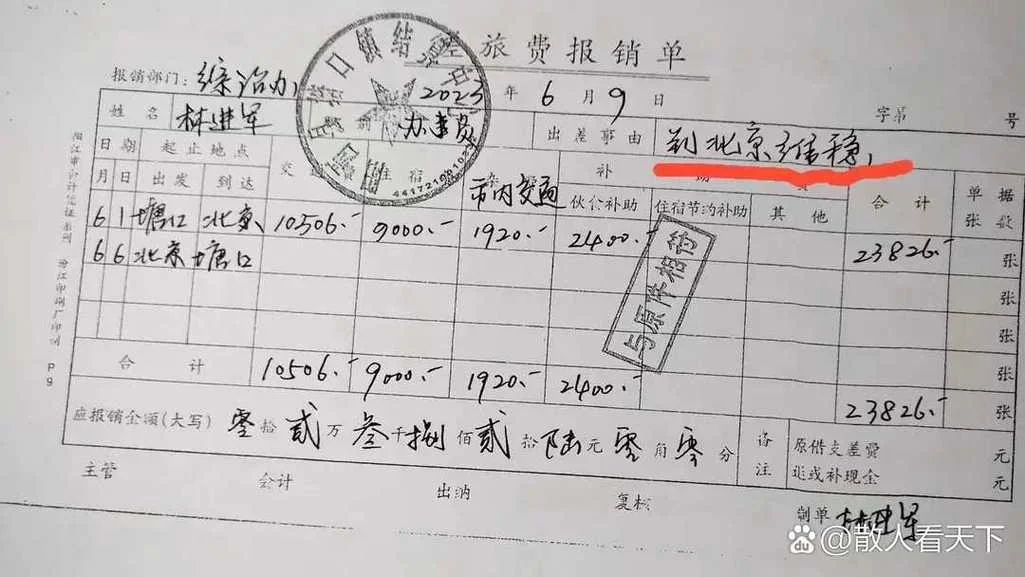 差旅费报销单
报销部门：综治办 2023年6月9日 字第 号
姓名 林进军 职别 办事员 出差事由 到北京维稳
日期 起止地点 交通 住宿 市内交通 补助费 合计 单据
月 日 出发 到达 伙食补助 住宿节约补助 其他 张数
6 1 塘口 北京 10506.- 9000.- 1920.- 2400.- 23826.- 张
6 6 北京 塘口 张
张
张
张
合计 10506.- 9000.- 1920.- 2400.- 23826.- 张
应报销金额(大写) 零拾贰万叁千捌佰贰拾陆元零角零分 备注 原借支差费 元
退或补现金 元
主管 会计 出纳 复核 制单 林进军
口镇结
44172
与原件相符
阳江市会计凭证系列 阳江印刷厂印制 P9
@散人看天下